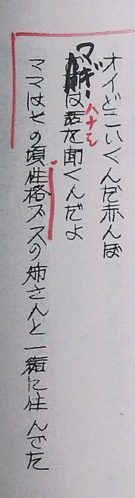 オイどこいくんだ赤んぼ
マギーは話を聞くんだよ
ハナシ
ママはその頃性格ブスの姉さんと一緒に住んでた